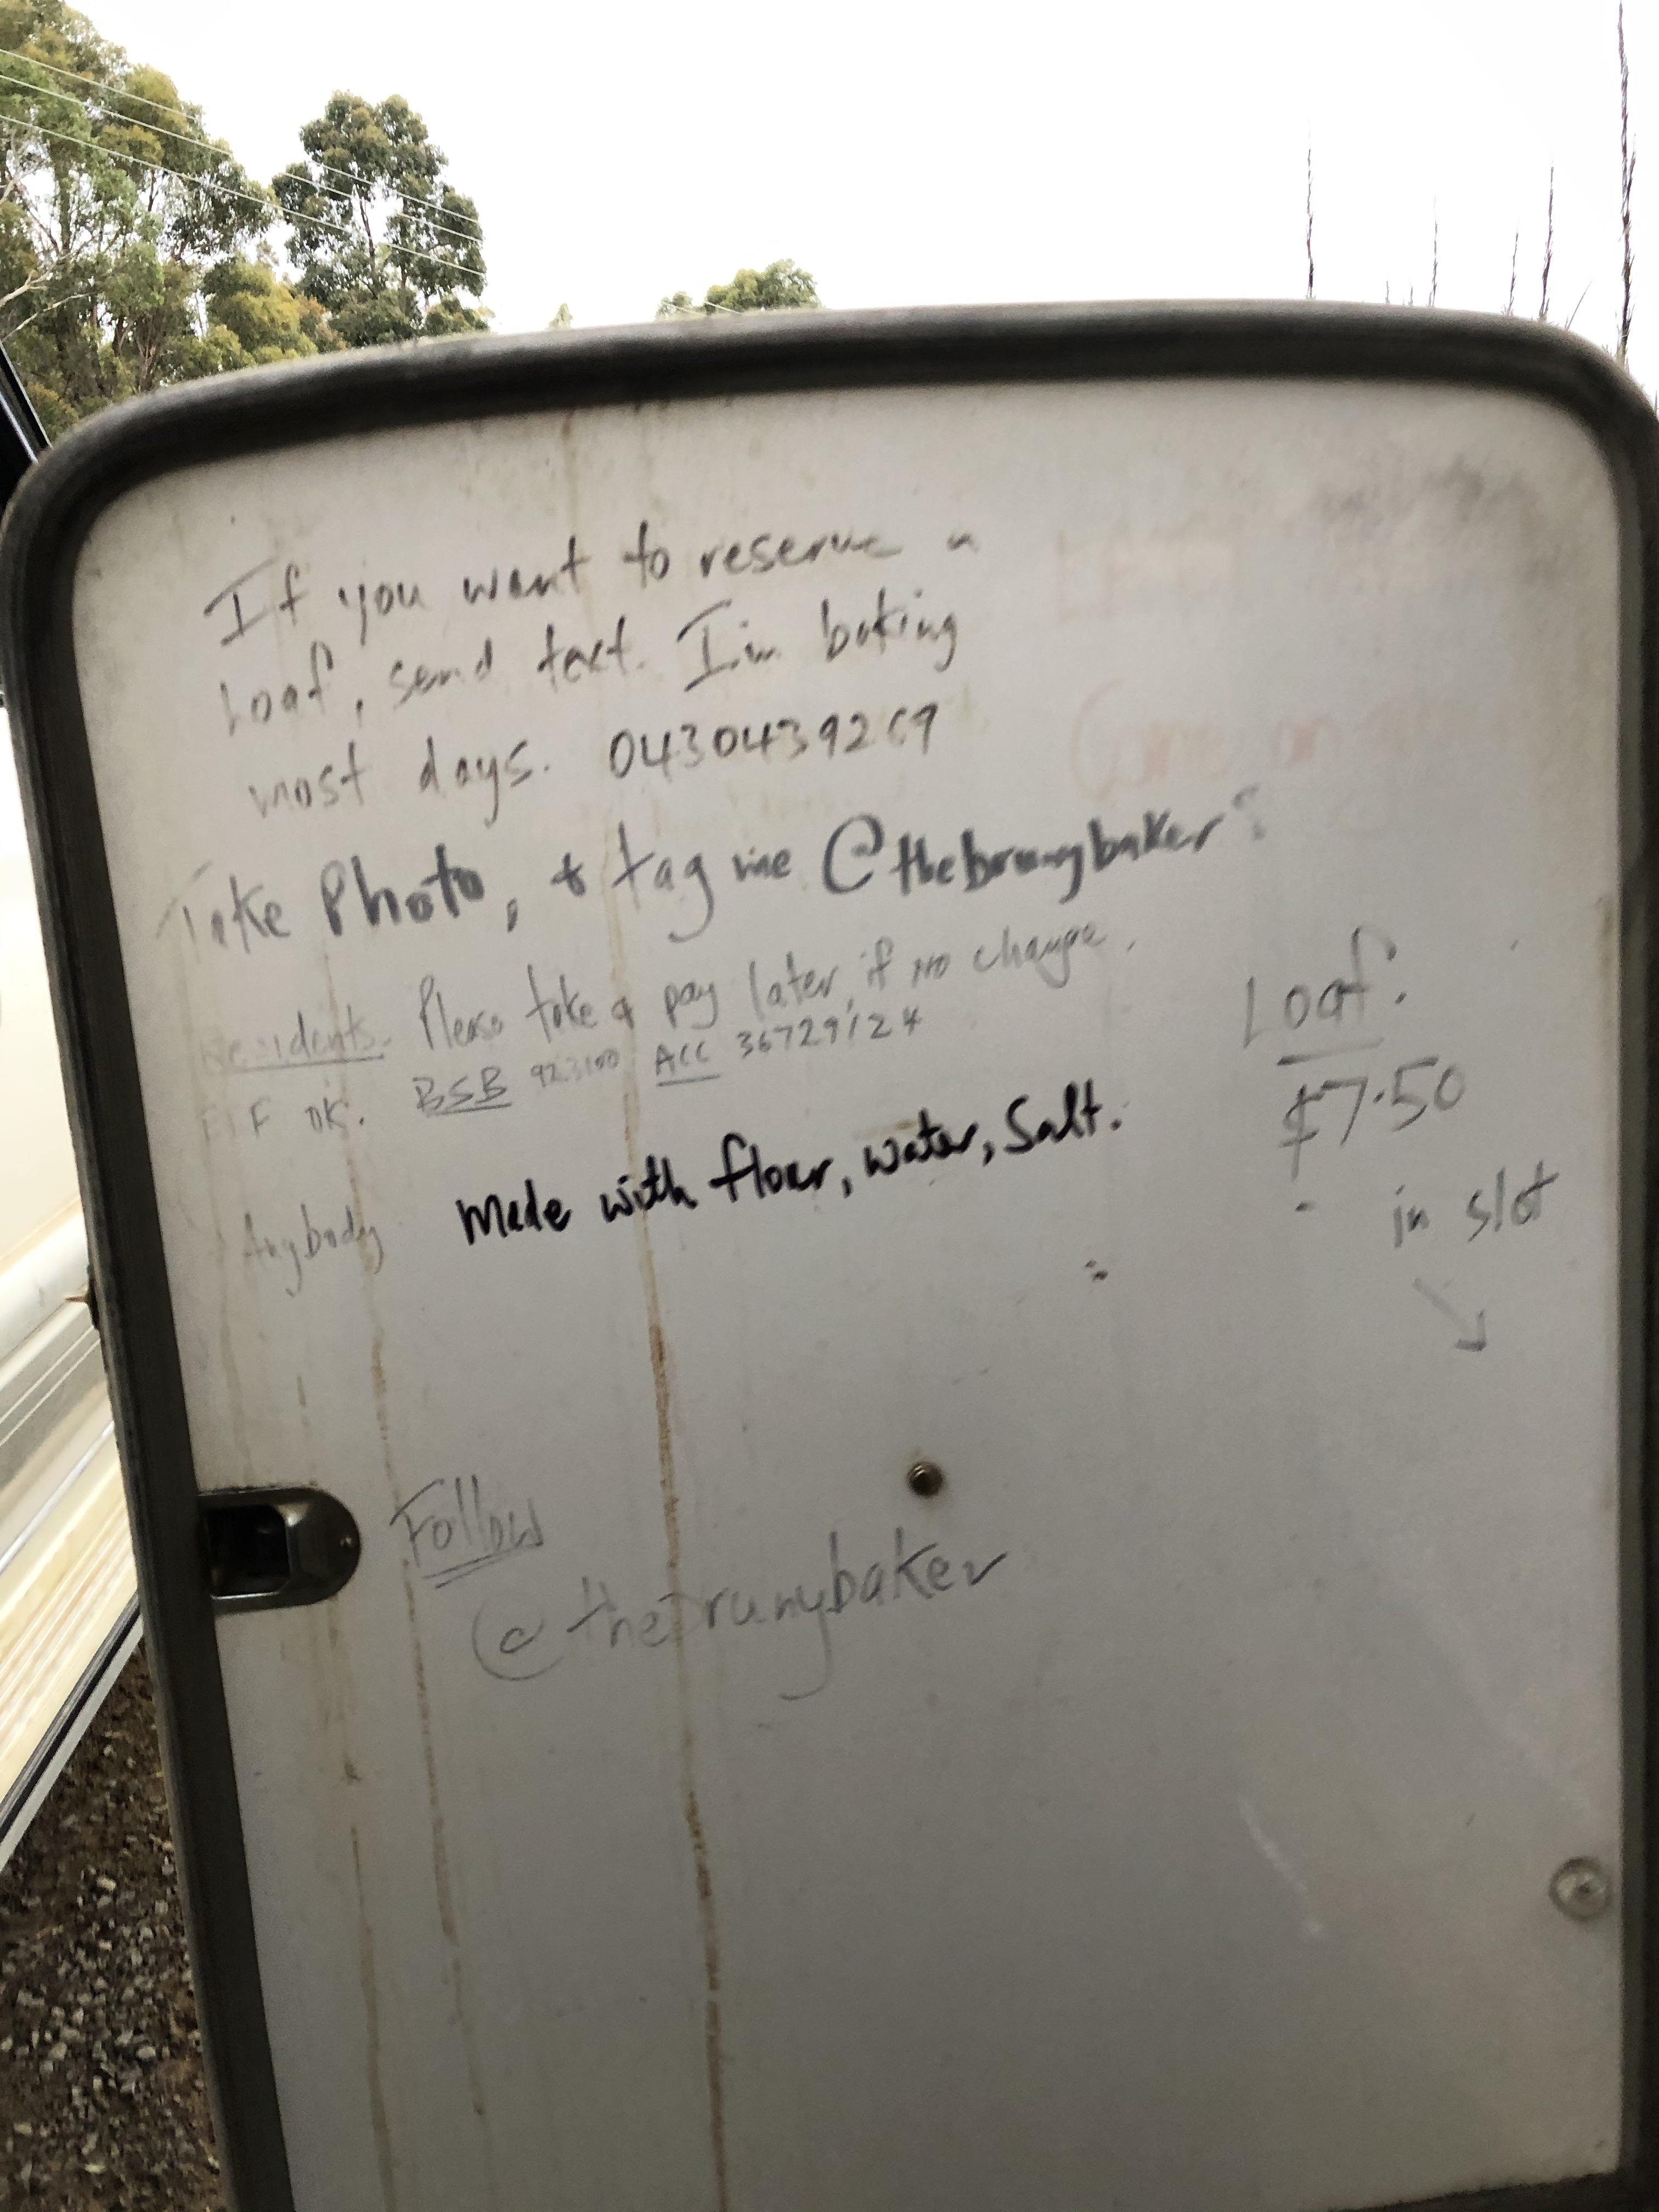 If you want to reserve a
Loaf, send text. I'm baking
most days. 0430439269
Take Photo, & tag me @thebrunybaker
Residents. Please take & pay later, if no change.
OK. BSB 923100 ACC
Anybody
Made with flour, water, Salt.
Loaf.
$7.50
in slot
Follow
@thebrunybaker
Come on